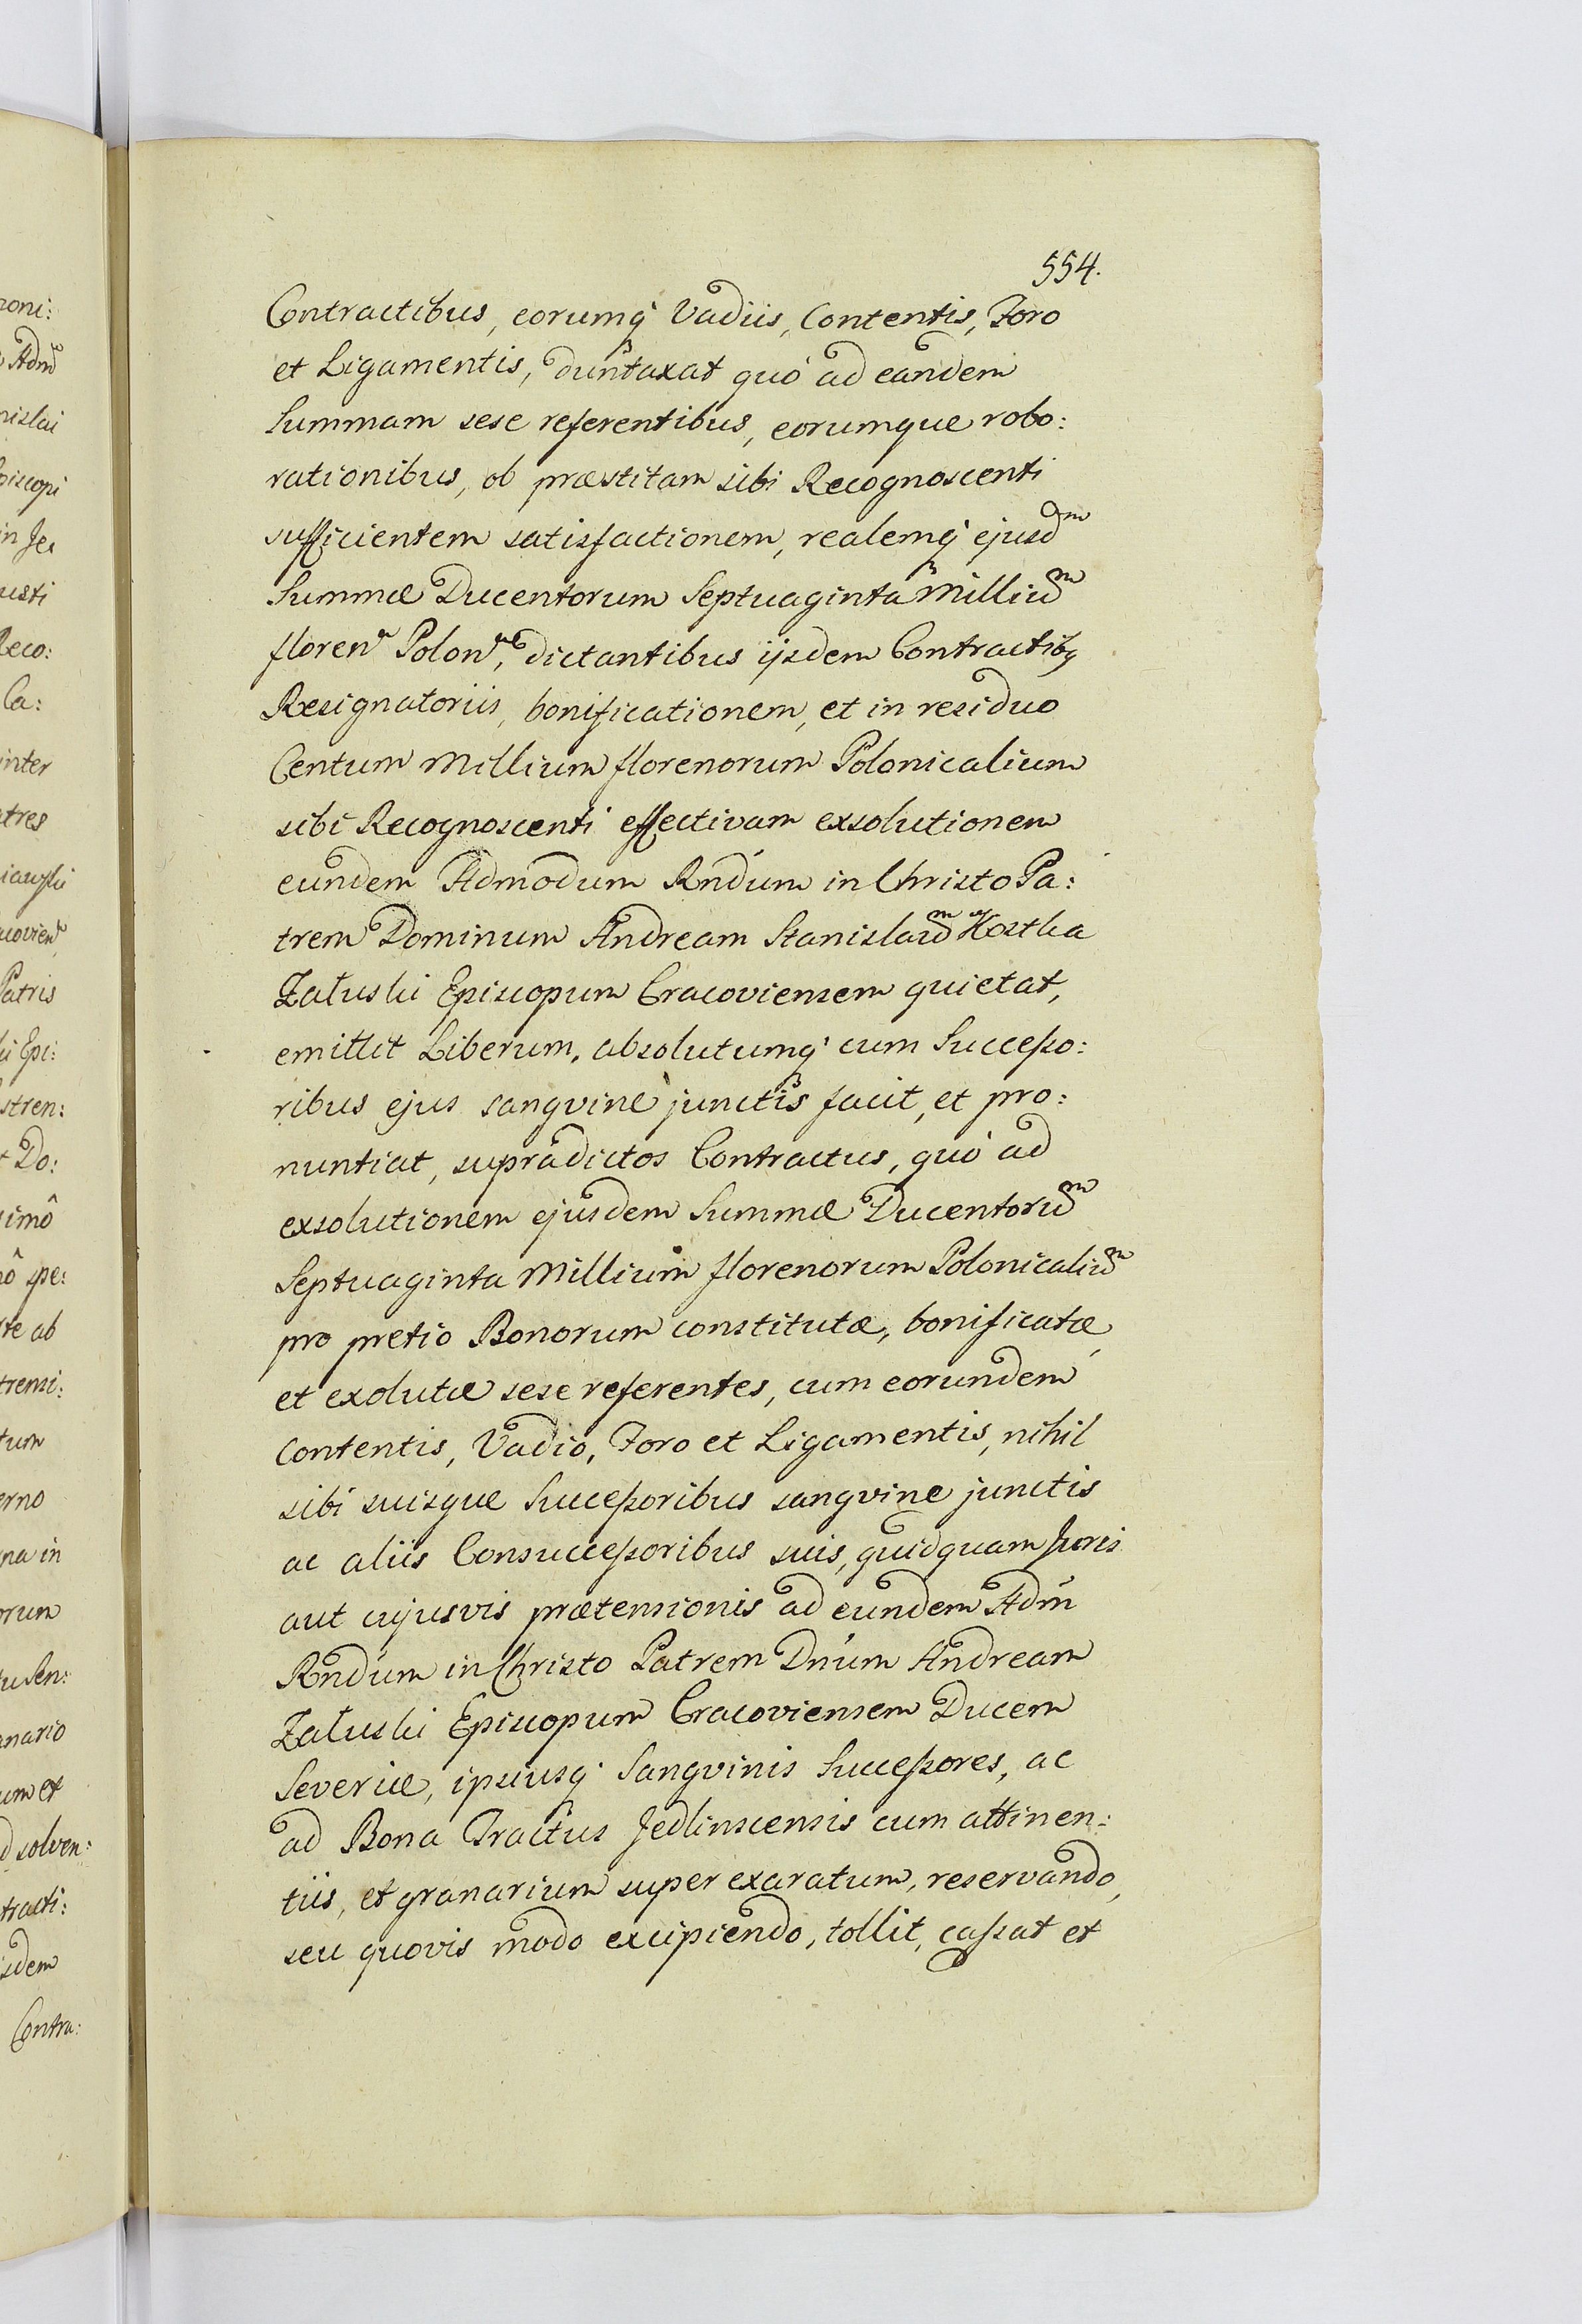 554.
Contractibus, eorumq́ Vadiis, Contentis, Foro
et Ligamentis, duntaxat quó ad eandem
Summam sese referentibus, eorumque robo:
rationibus, ob præstitam sibi Recognoscenti
sufficientem satisfactionem, realemq́ ejusdᵐ
Summæ Ducentorum Septuaginta Milliuᵐ
florenʳ Polonʳ, dictantibus ijsdem Contractibꝫ
Resignatoriis, bonificationem, et in residuo
Centum Millium florenorum Polonicalium
sibi Recognoscenti effectivam exsolutionem
eundem Admodum Rndum in Christo Pa:
trem Dominum Andream Stanislauᵐ Kostka
Załuski Episcopum Cracoviensem quietat,
emittit Liberum, absolutumq́ cum Succeßo:
ribus ejus sangvine junctis facit, et pro:
nuntiat, supradictos Contractus, quó ad
exsolutionem ejusdem Summæ Ducentoruᵐ
Septuaginta Millium florenorum Polonicaliuᵐ
pro pretio Bonorum constitutæ, bonificatæ,
et exolutæ sese referentes, cum eorundem
Contentis, Vadio, Foro et Ligamentis, nihil
sibi suisque Succeßoribus sangvine junctis
ac aliis Consucceßoribus suis, quidquam Juris
aut cujusvis prætensionis ad eundem Adm
Rndum in Christo Patrem Dnum Andream
Załuski Episcopum Cracoviensem Ducem
Severiæ, ipsiusq́ Sangvinis Succeßores, ac
ad Bona Tractus Jedlinscensis cum attinen:
tiis, et granarium super exaratum, reservando,
seu quovis modo excipiendo, tollit, caßat et
zoni:
nislai
piscopi
in Jed
usti
Reco:
Ca:
inter
atres
Patris
ki Epi:
stren:
t Do:
simô
spe:
te ab
tremi:
tum
erno
na in
orum
Sen:
anario
um et
d solven:
tracti:
sdem
Contra: